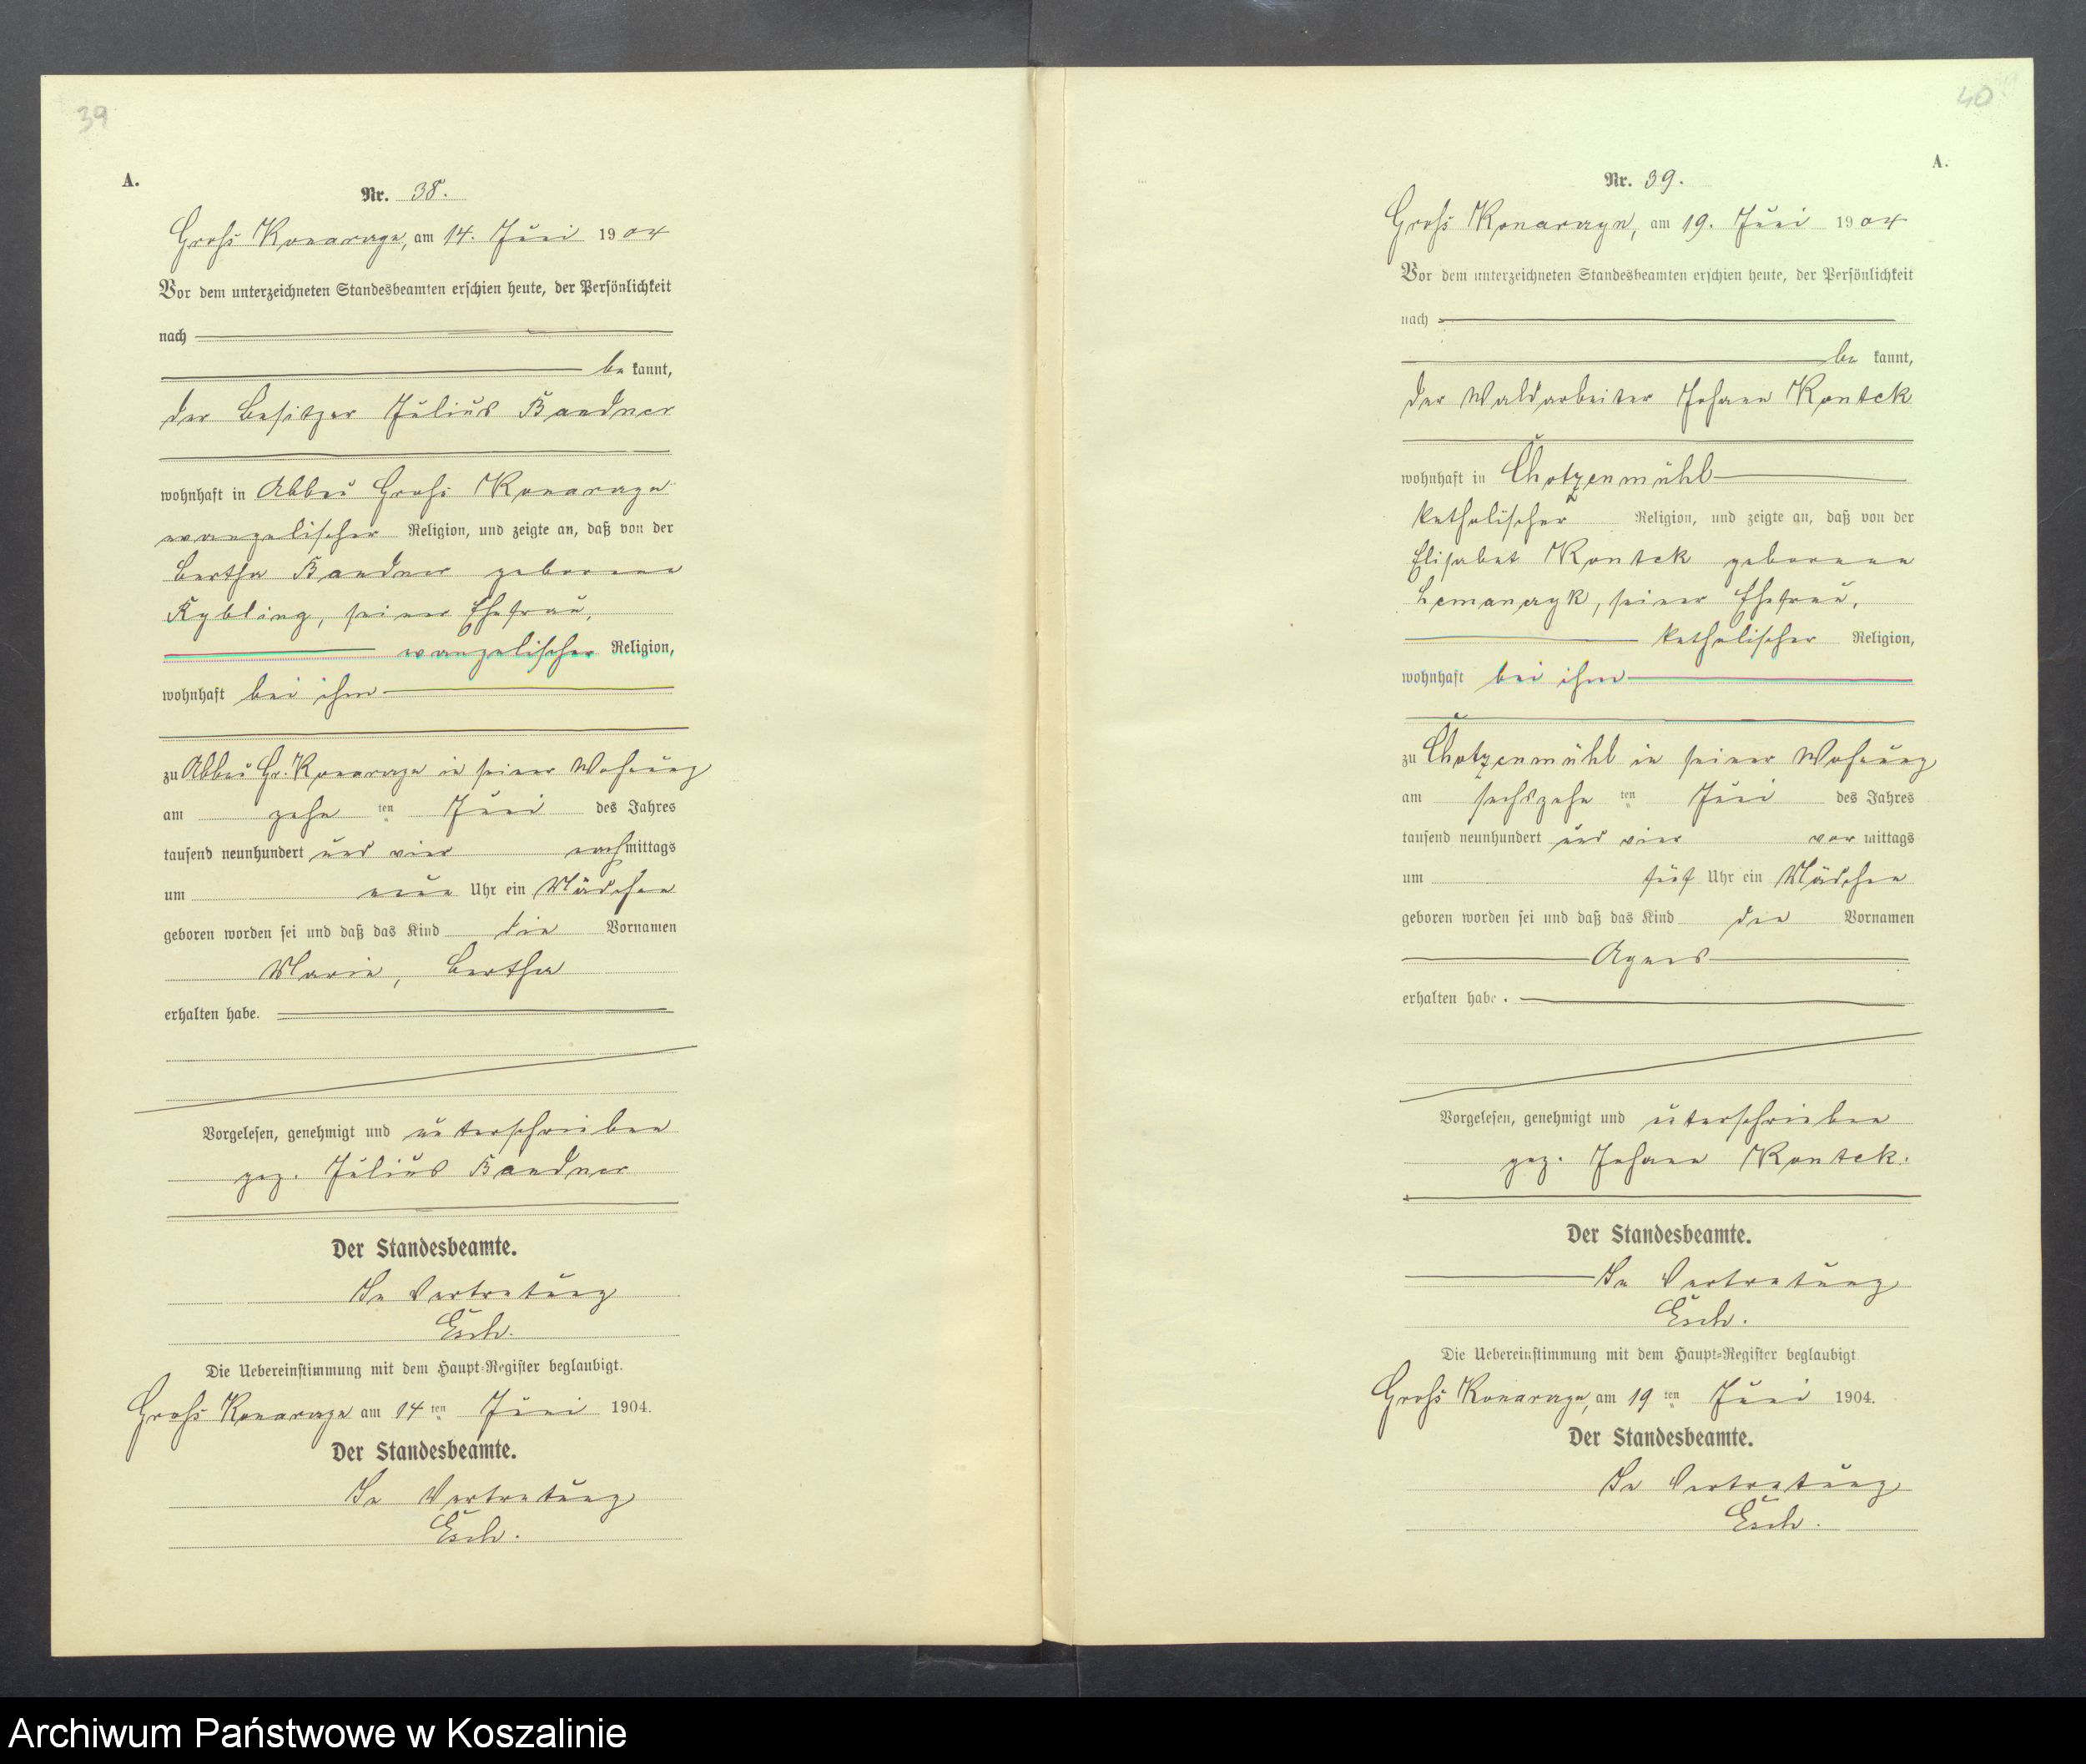 39
A.
Nr. 38.
Groß Konarzyn, am 14. Juni 1904
Vor dem unterzeichneten Standesbeamten erschien heute, der Persönlichkeit
nach
be kannt,
der Besitzer Julius Bandner
wohnhaft in Abbau Groß Konarzyn
evangelischer Religion, und zeigte an, daß von der
Bertha Bandner geborene
Kybling, seiner Ehefrau,
evangelischer Religion,
wohnhaft bei ihm
zu Abbau Gr. Konarzyn in seiner Wohnung
am zehn ten Juni des Jahres
tausend neunhundert und vier nachmittags
um neun Uhr ein Mädchen
geboren worden sei und daß das Kind die Vornamen
Marie, Bertha
erhalten habe.
Vorgelesen, genehmigt und unterschrieben
gez. Julius Bandner
Der Standesbeamte.
In Vertretung
Esch.
Die Uebereinstimmung mit dem Haupt-Register beglaubigt.
Groß Konarzyn am 14 ten Juni 1904.
Der Standesbeamte.
In Vertretung
Esch.
40
A.
Nr. 39.
Groß Konarzyn, am 19. Juni 1904
Vor dem unterzeichneten Standesbeamten erschien heute, der Persönlichkeit
nach
be kannt,
der Waldarbeiter Johann Kontek
wohnhaft in Chotzenmühl
katholischer Religion, und zeigte an, daß von der
Elisabet Kontek geborenen
Lemanczyk, seiner Ehefrau,
katholischer Religion,
wohnhaft bei ihm
zu Chotzenmühl in seiner Wohnung
am sechszehn ten Juni des Jahres
tausend neunhundert und vier vor mittags
um fünf Uhr ein Mädchen
geboren worden sei und daß das Kind den Vornamen
Agnes
erhalten habe.
Vorgelesen, genehmigt und unterschrieben
gez. Johann Kontek.
Der Standesbeamte.
In Vertretung
Esch.
Die Uebereinstimmung mit dem Haupt-Register beglaubigt
Groß Konarzyn, am 19 ten Juni 1904.
Der Standesbeamte.
In Vertretung
Esch.
Archiwum Państwowe w Koszalinie